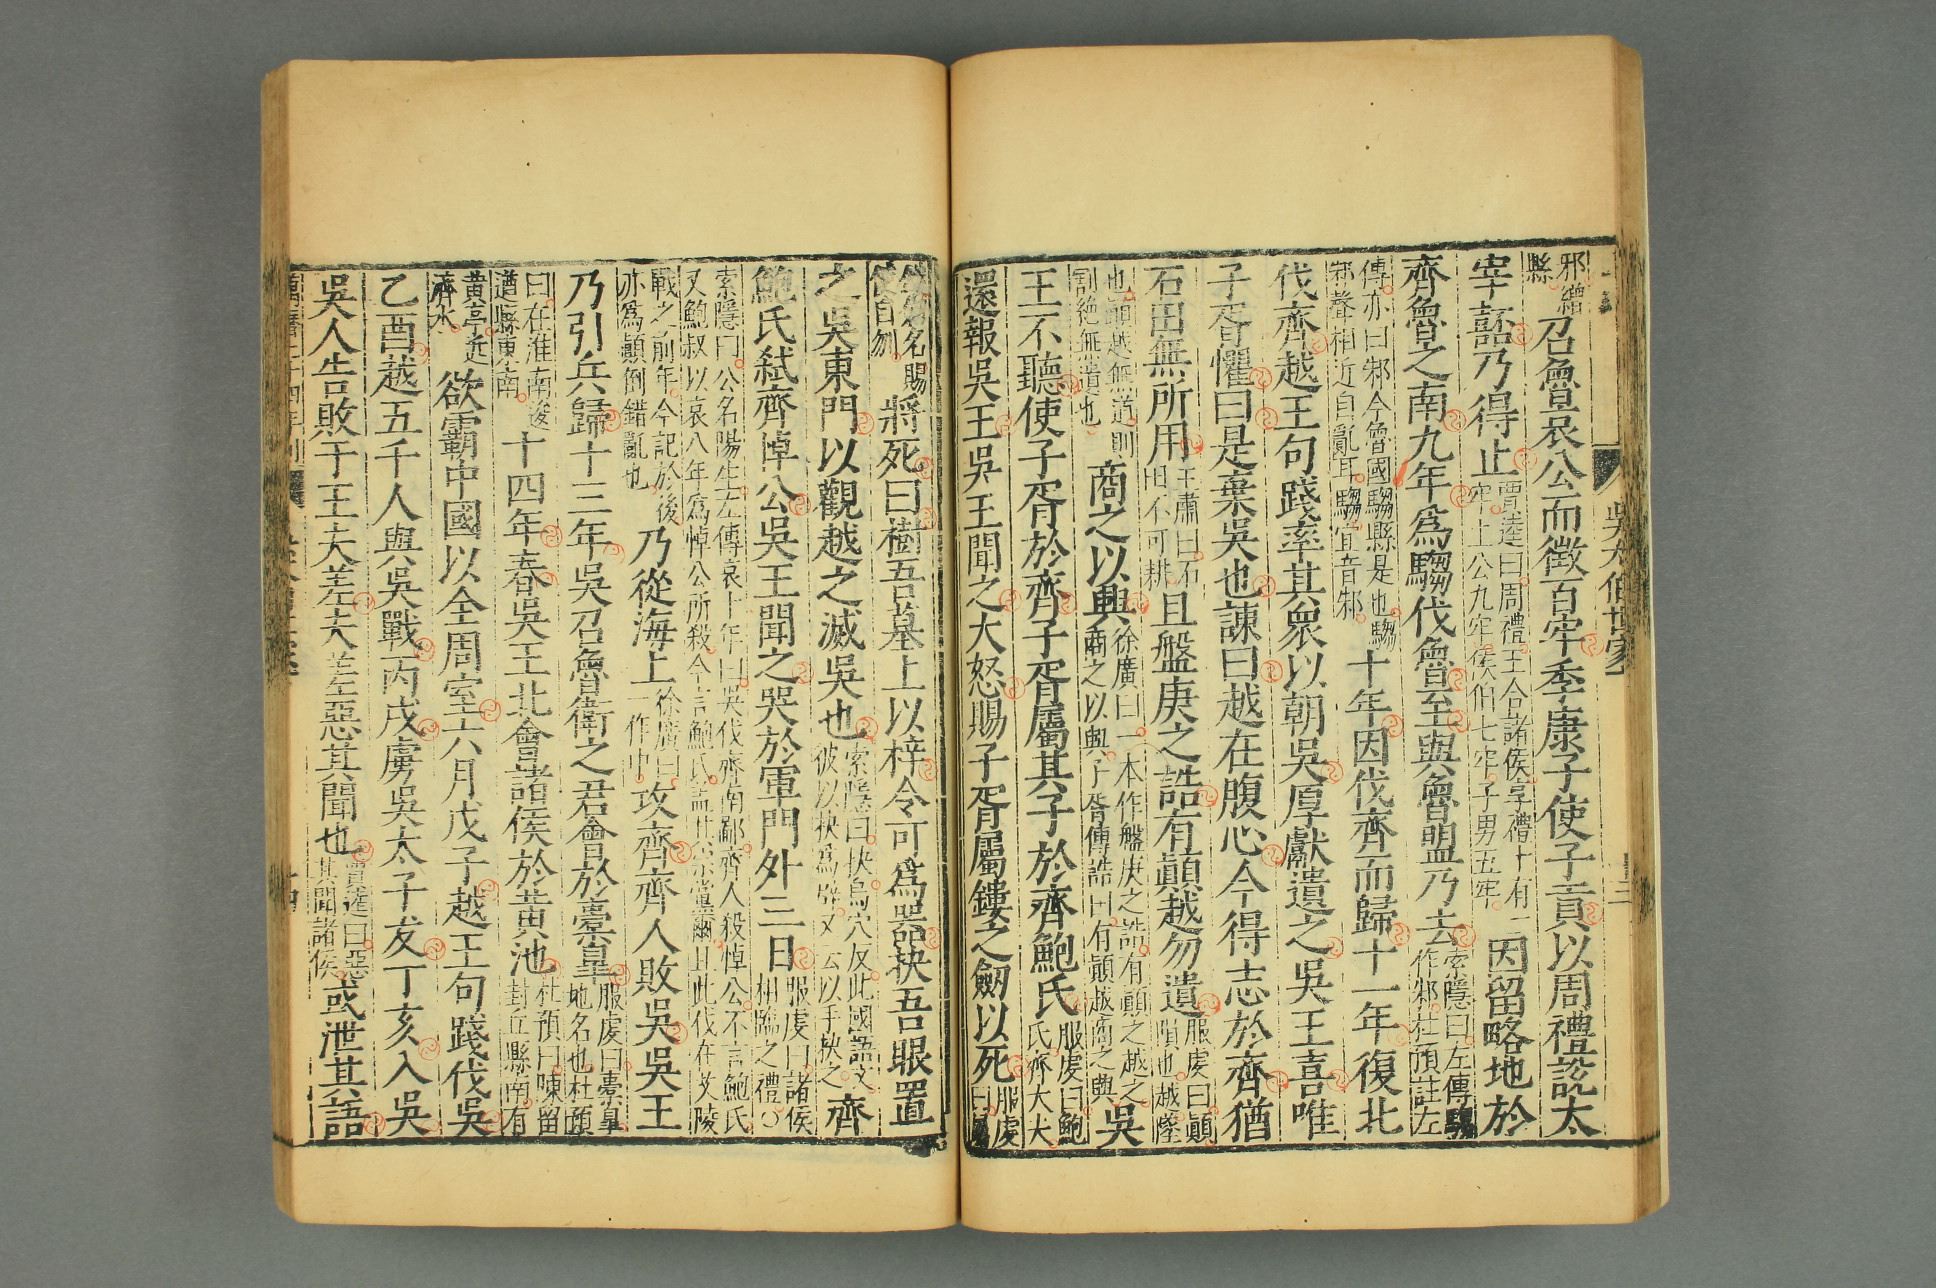 吳太伯世家 十三
邪繒縣召魯哀公而徵百牢季康子使子貢以周禮說太
宰嚭乃得止賈逵曰周禮王合諸侯享禮十有二牢上公九牢侯伯七牢子男五牢因留略地於
齊魯之南九年爲騶伐魯至與魯盟乃去索隱曰左傳騶作邾杜預註左
傳亦曰邾今魯國騶縣是也騶邾聲相近自亂耳騶宜音邾十年因伐齊而歸十一年復北
伐齊越王句踐率其衆以朝吳厚獻遺之吳王喜唯
子胥懼曰是棄吳也諫曰越在腹心今得志於齊猶
石田無所用王肅曰石田不可耕且盤庚之誥有顛越勿遺服虔曰顛隕也越墜
也顛越無道則割絕無遺也商之以興徐廣曰一本作盤庚之誥有顛之越之商之以興子胥傳誥曰有顛越商之興吳
王不聽使子胥於齊子胥屬其子於齊鮑氏服虔曰鮑氏齊大夫
還報吳王吳王聞之大怒賜子胥屬鏤之劒以死服虔曰屬
鏤劒名賜使自刎將死曰樹吾墓上以梓令可爲器抉吾眼置
之吳東門以觀越之滅吳也索隱曰抉烏穴反此國語文彼以抉爲辟又云以手抉之齊
鮑氏弑齊悼公吳王聞之哭於軍門外三日服虔曰諸侯相臨之禮○
索隱曰公名陽生左傳哀十年曰吳伐齊南鄙齊人殺悼公不言鮑氏
又鮑叔以哀八年爲悼公所殺今言鮑氏蓋其宗黨爾且此伐在艾陵
戰之前年今記於後亦爲顛倒錯亂也乃從海上徐廣曰一作中攻齊齊人敗吳吳王
乃引兵歸十三年吳召魯衛之君會於橐皐服虔曰橐皐地名也杜預
曰在淮南逡遒縣東南十四年春吳王北會諸侯於黃池杜預曰陳留封丘縣南有
黃亭近濟水欲霸中國以全周室六月戊子越王句踐伐吳
乙酉越五千人與吳戰丙戌虜吳太子友丁亥入吳
吳人告敗于王夫差夫差惡其聞也賈逵曰惡其聞諸侯或泄其語
萬曆二十四年刊 十四